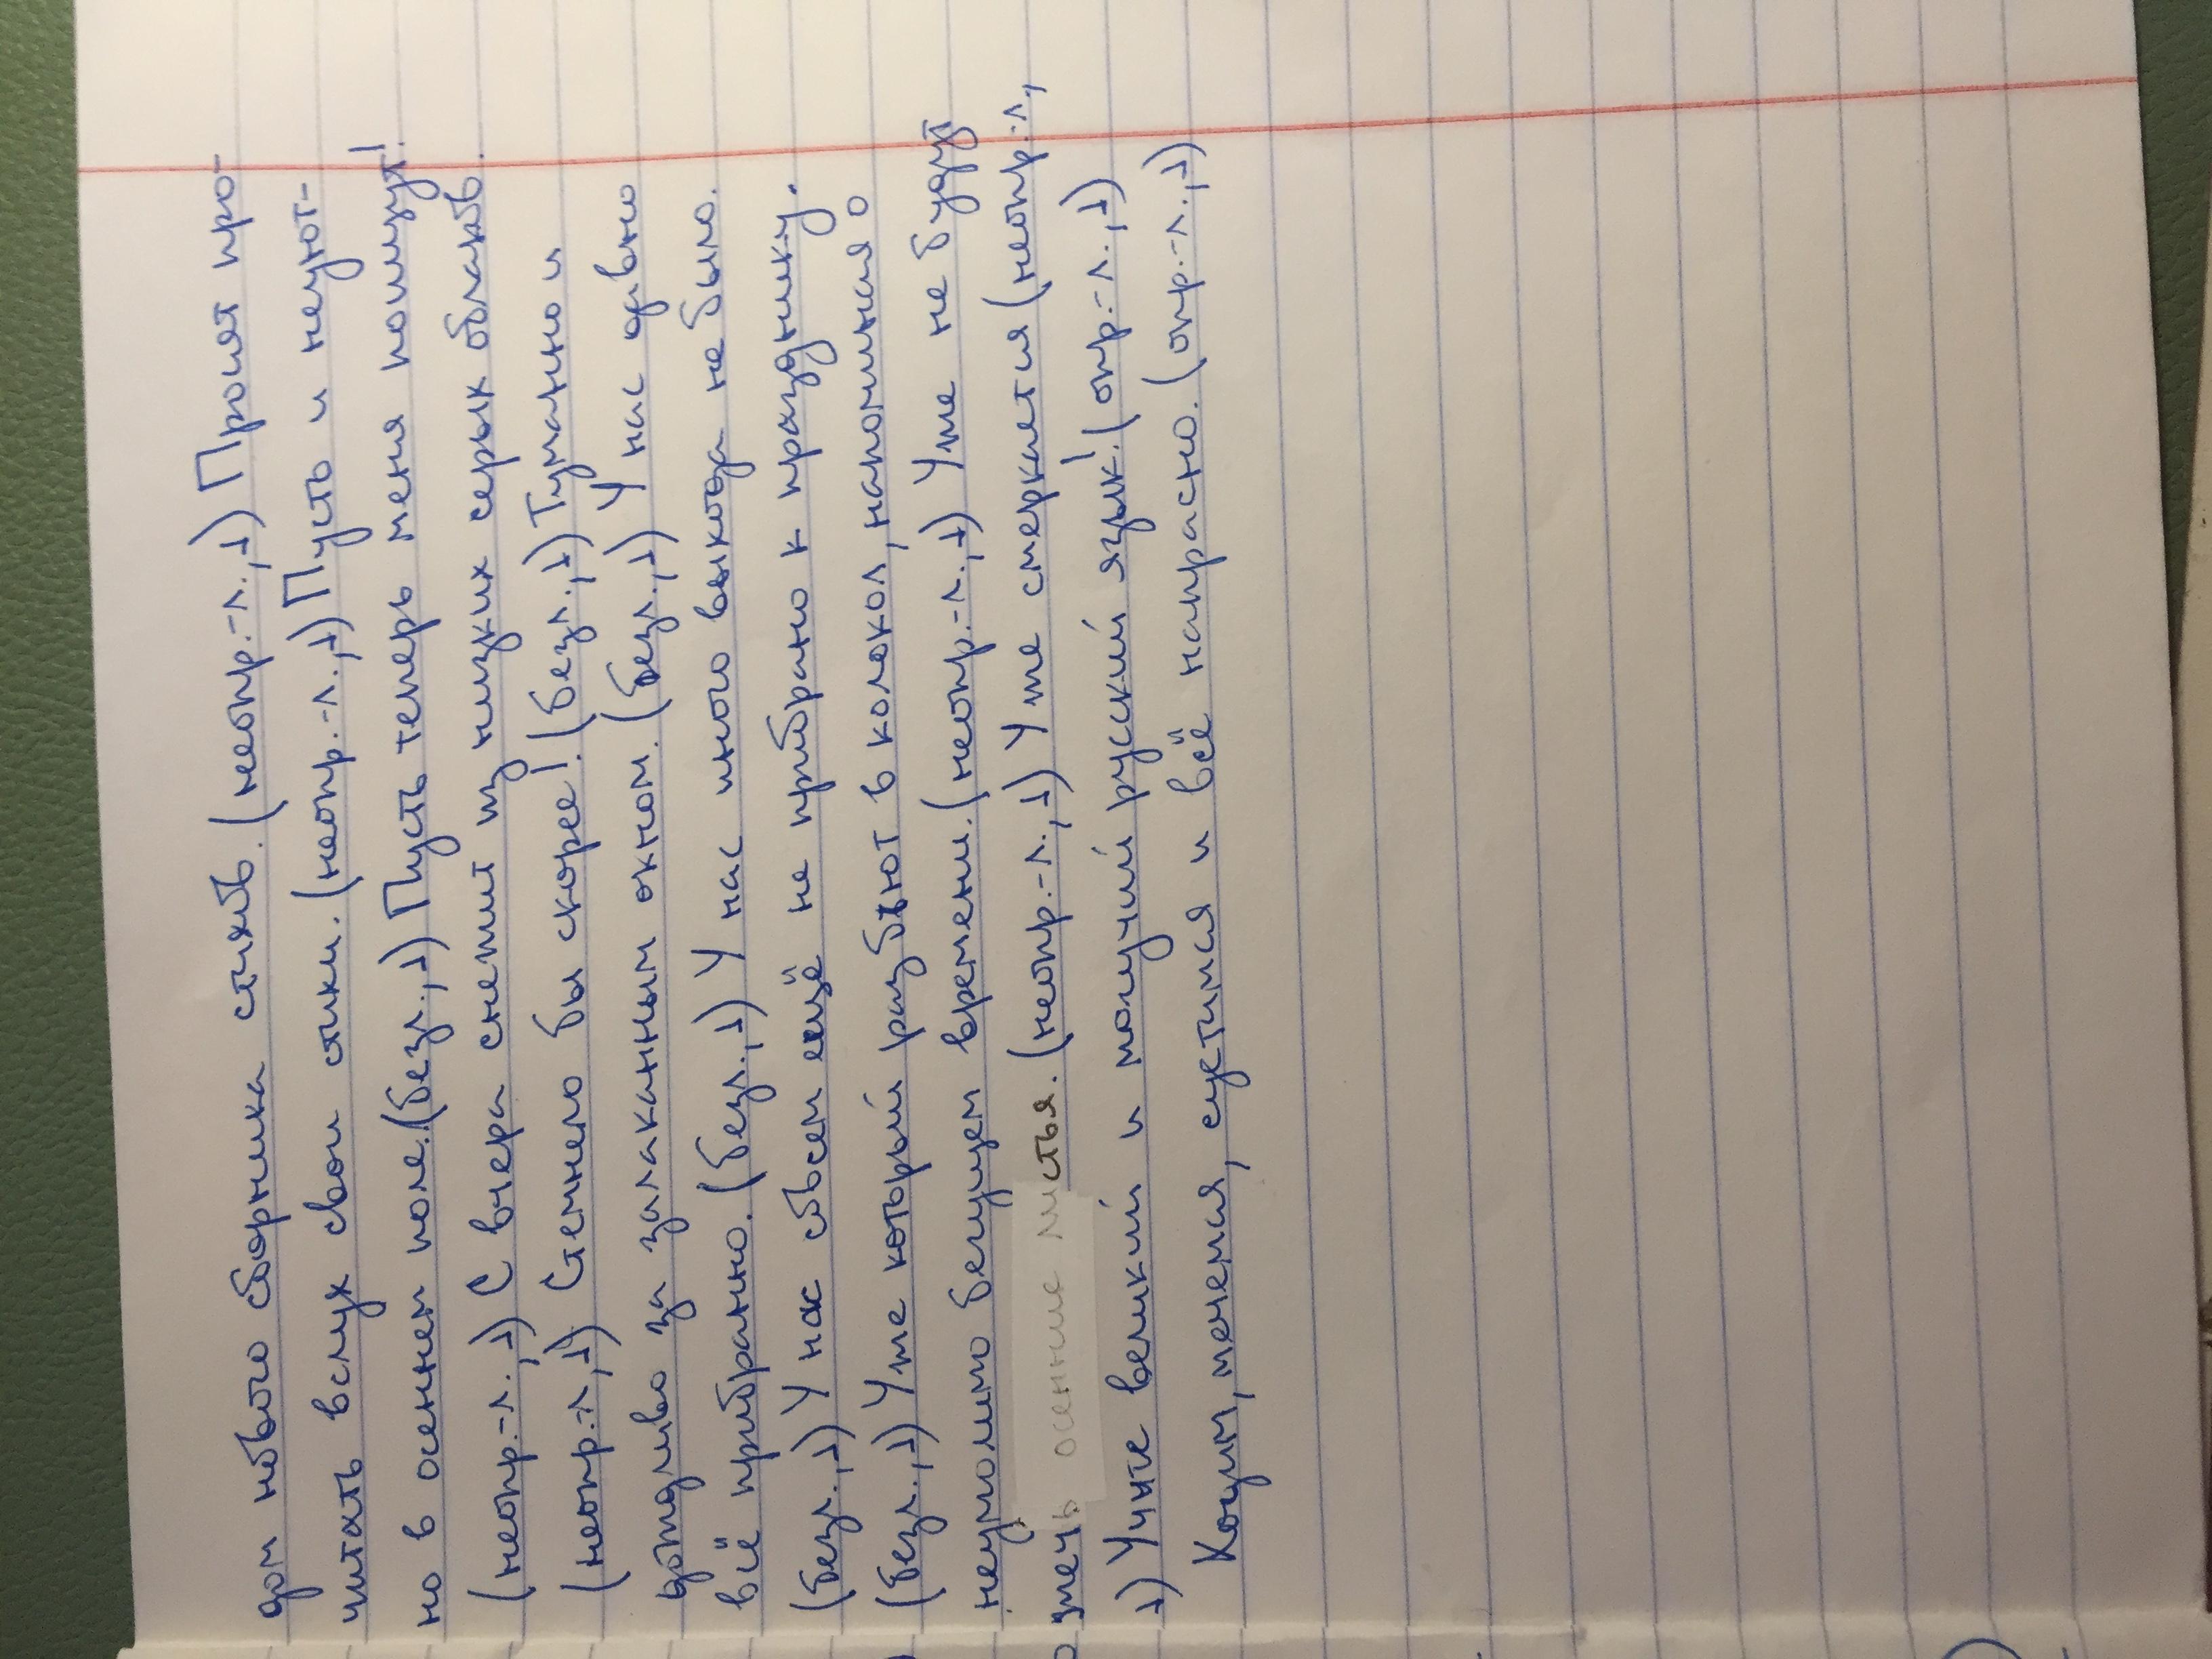 дом нового сборника стихов. (неопр.-л.,1) Просят про-
читать вслух свои стихи. (неопр.-л.,1) Пусто и неуют-
но в осеннем поле. (безл.,1) Пусть теперь меня поищут!
(неопр.-л.,1) С вчера снежит из низких серых облаков.
(неопр.-л,1) Стемнело бы скорее! (безл.,1) Туманно и
дождливо за заплаканным окном. (безл.,1) У нас давно
всё прибранно. (безл.,1) У нас иного выхода не было.
(безл.,1) У нас совсем ещё не прибрано к празднику.
(безл.,1) Уже который раз бьют в колокол, напоминая о
неумолимо бегущем времени. (неопр.-л.,1) Уже не будут
жечь осенние листья. (неопр.-л.,1) Уже смеркается (неопр.-л,
1) Учите великий и могучий русский язык! (опр.-л.,1)
Ходим, мечемся, суетимся и всё напрасно. (опр.-л.,1)